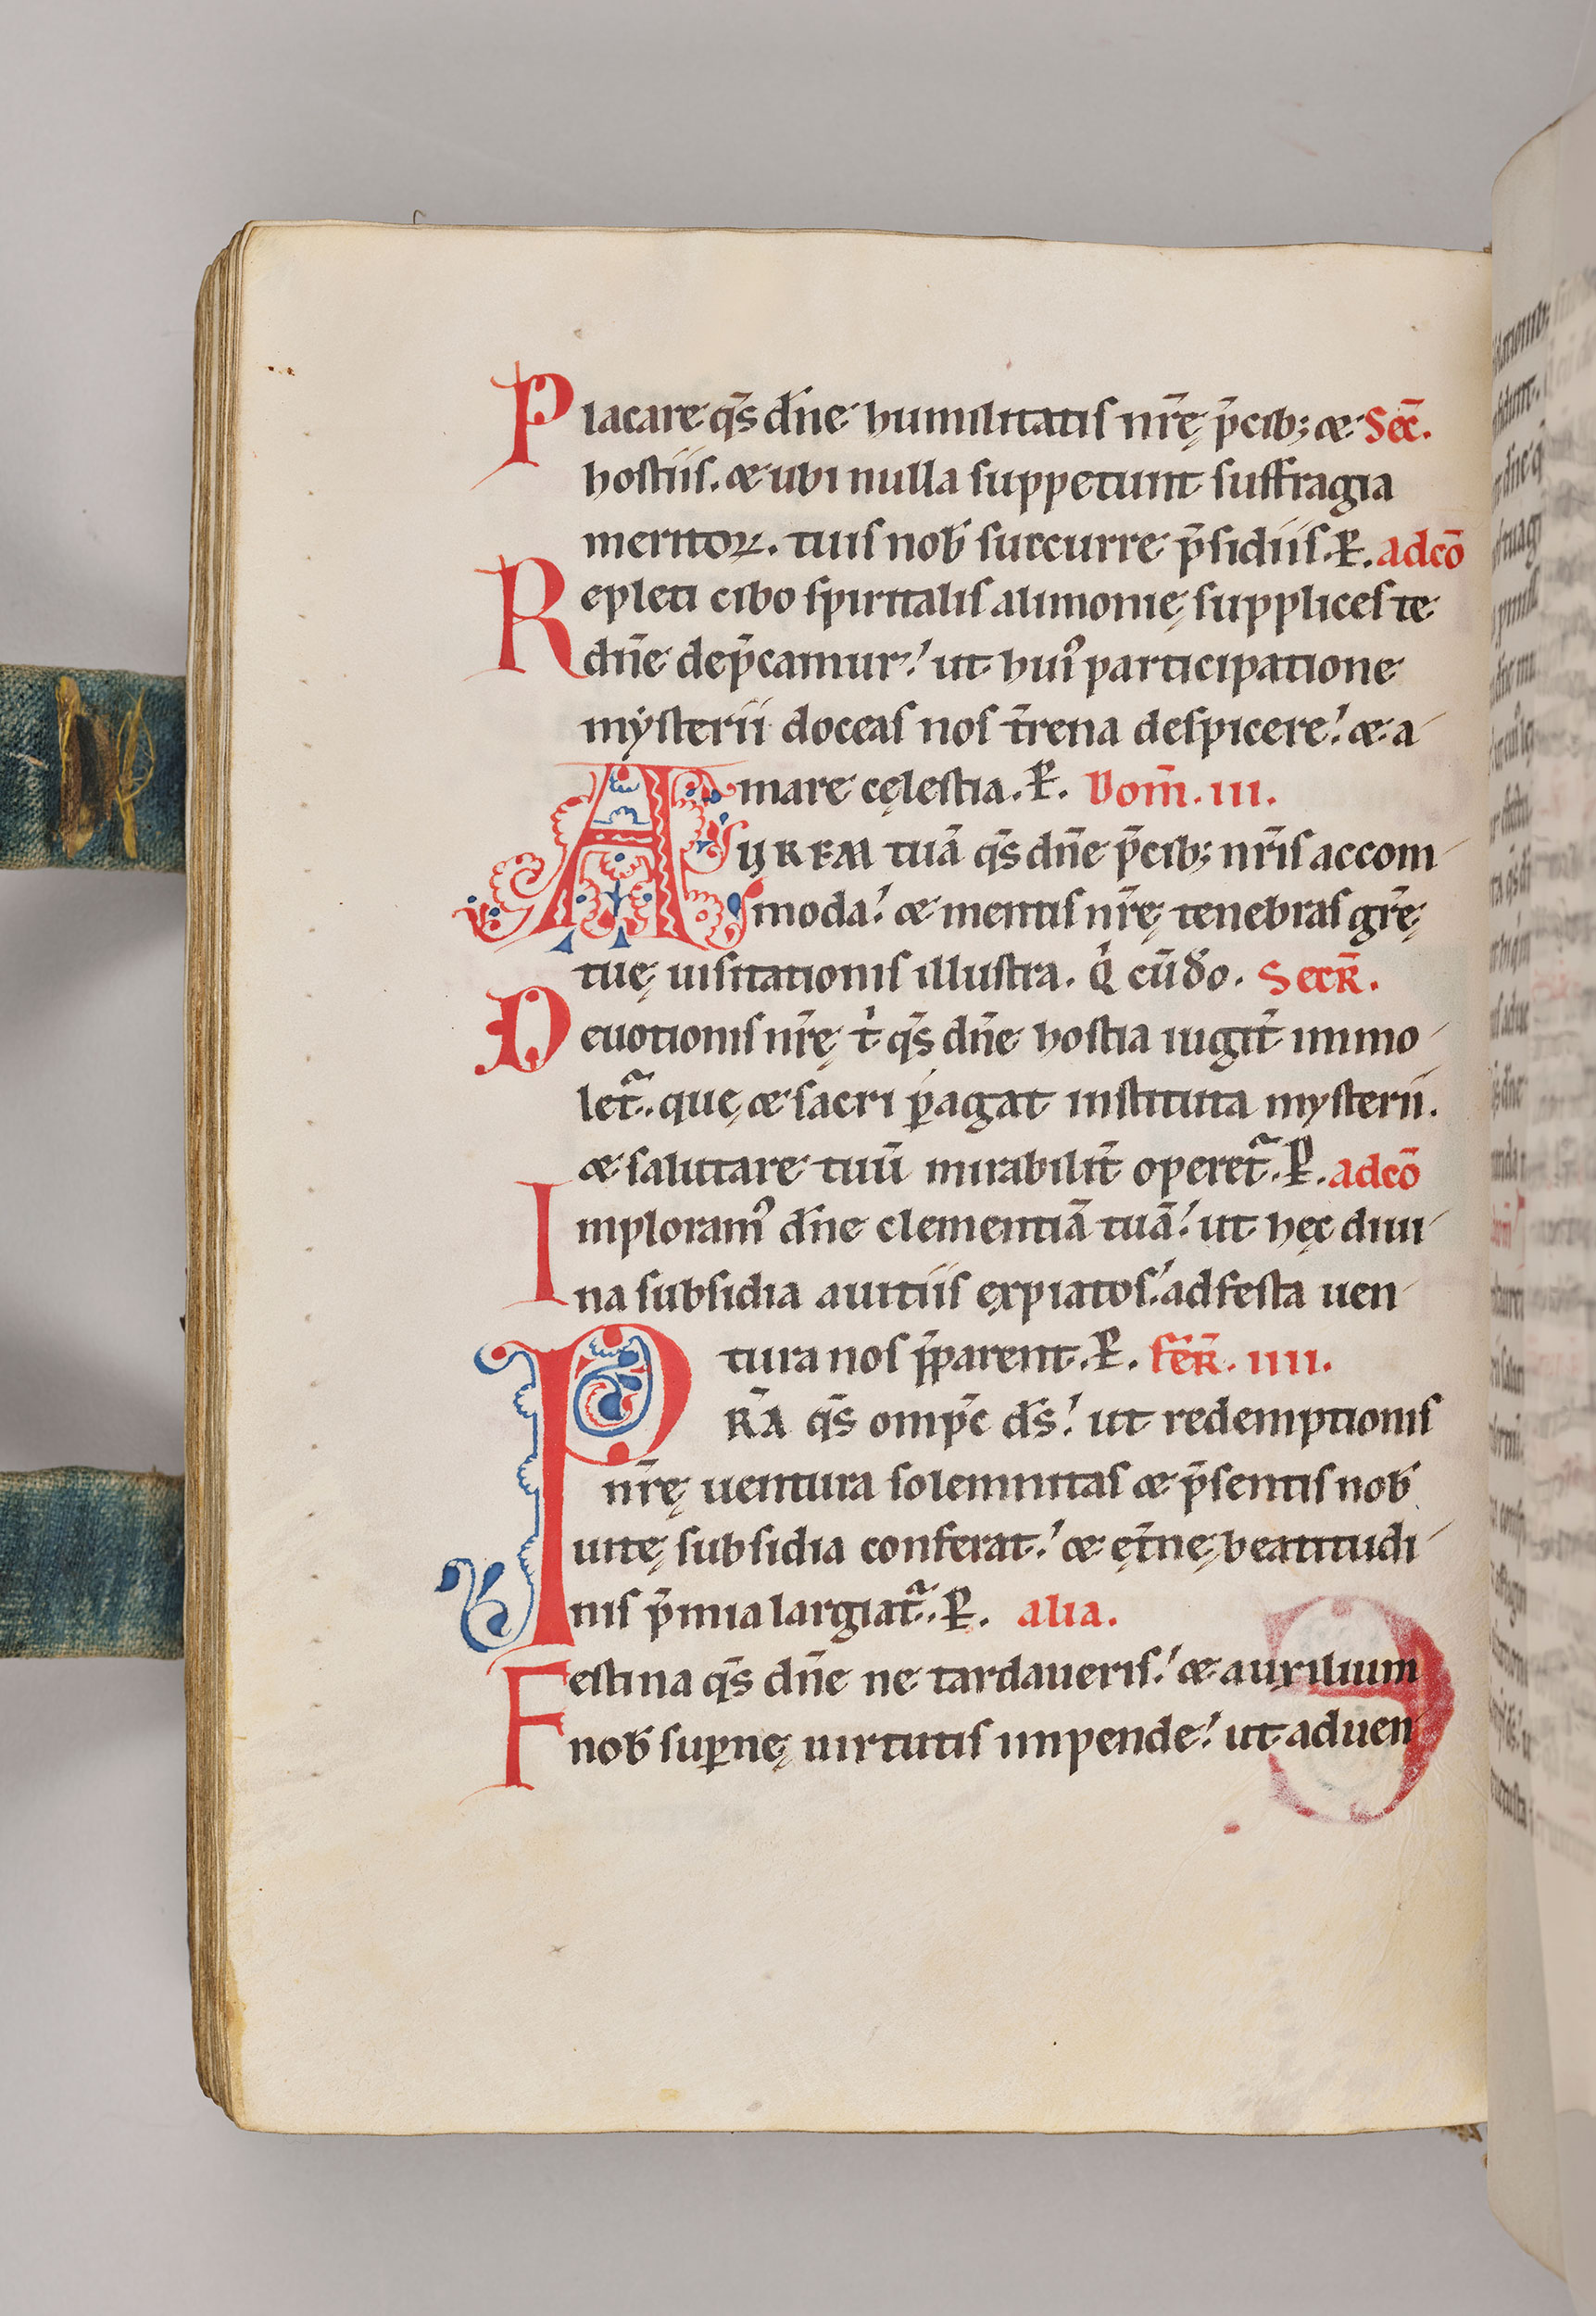 Placare qs̄ dn̄e humilitatis nr̄ę p̄cib; & Sec̄.
hostiis. & ubi nulla suppetunt suffragia
meritoꝝ. tuis nob̄ succurre p̄sidiis. P̱. adcō
Repleti cibo spiritalis alimonię supplices te
dn̄e dep̄camur. ut huiꝰ participatione
mysterii doceas nos t̄rena despicere. & a-
mare cęlestia. P̱. Dom̄. III.
AUREM tuā qs̄ dn̄e p̄cib; nr̄is accom-
moda. & mentis nr̄ę tenebras gr̄ę
tuę uisitationis illustra. Q̇ cū do. SECR̄.
Deuotionis nr̄ę ṫ qs̄ dn̄e hostia iugit̄ immo-
let᷑. quę & sacri ꝑagat instituta mysterii.
& salutare tuū mirabilit̄ operet᷑. P̱. adcō
Imploramꝰ dn̄e clementiā tuā. ut hęc diui-
na subsidia a uitiis expiatos. ad festa uen-
tura nos p̄parent. P̱. FER̄. IIII.
PR̄A qs̄ omp̄c ds̄. ut redemptionis
nr̄ę uentura solemnitas & p̄sentis nob̄
uitę subsidia conferat. & ęt̄nę beatitudi-
nis p̄mia largiat᷑. P̱. alia.
Festina qs̄ dn̄e ne tardaueris. & auxilium
nob̄ suꝑnę uirtutis impende. ut aduen-